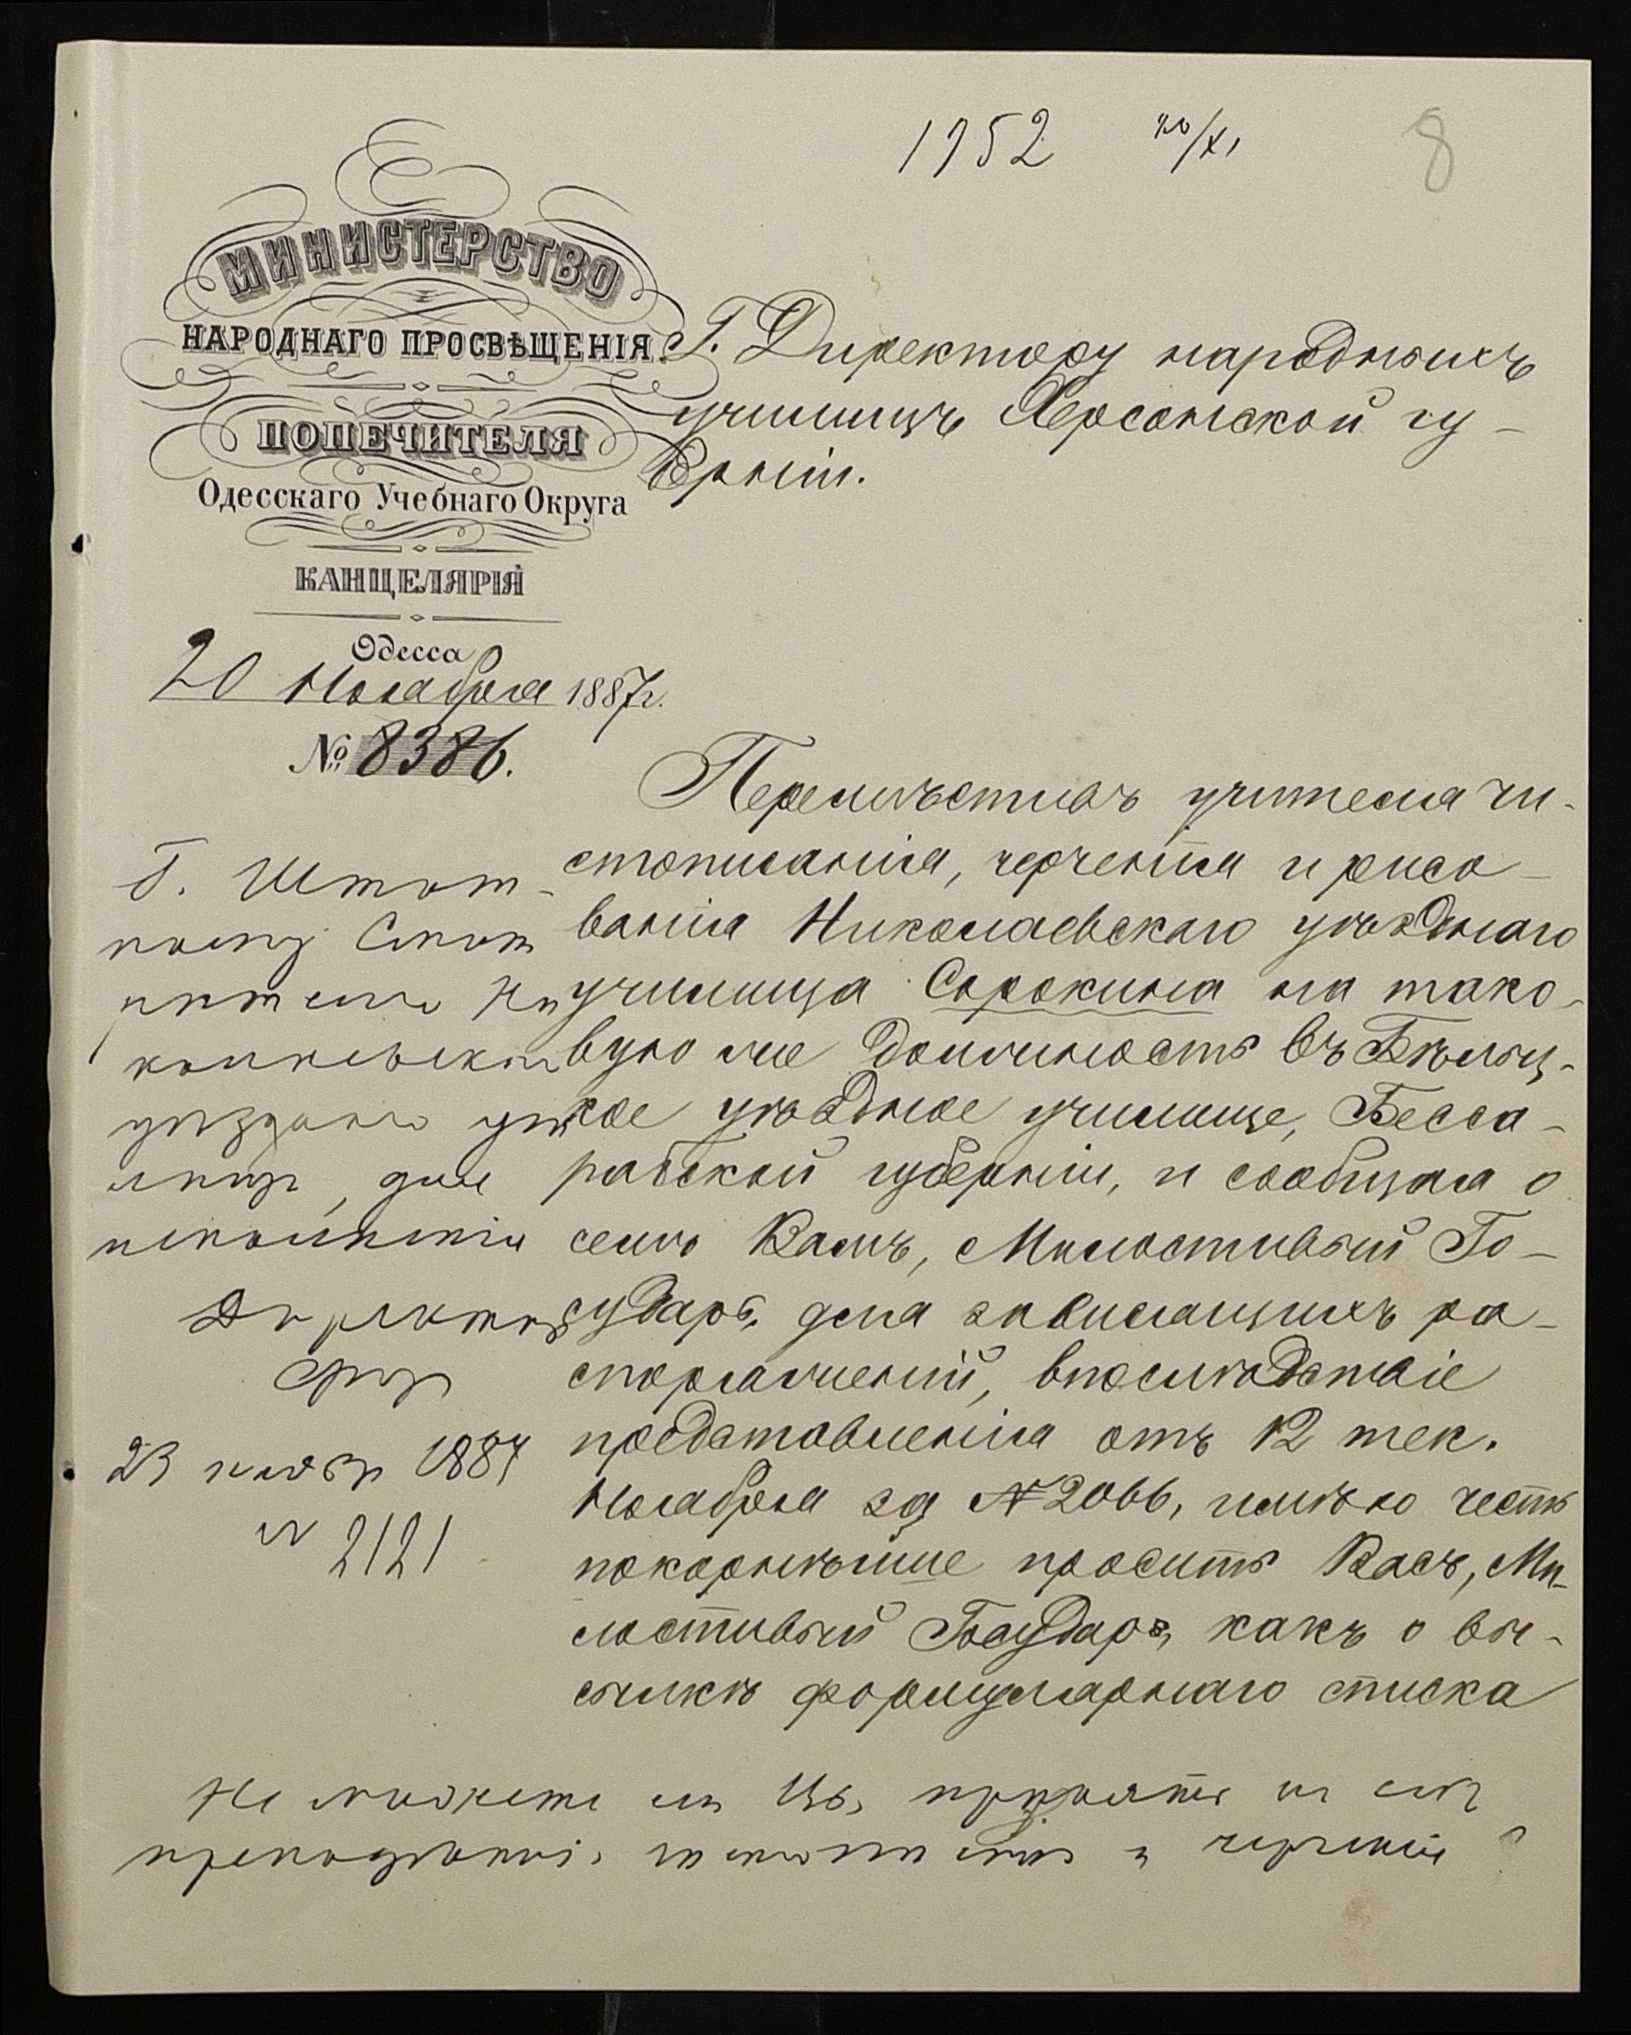 1952 20/XI 8
МИНИСТЕРСТВО
НАРОДНАГО ПРОСВѢЩЕНІЯ.
ПОПЕЧИТЕЛЯ
Одесскаго Учебнаго Округа
КАНЦЕЛЯРІЯ
Одесса
20 Ноября 1887 г.
№ 8386.
Г. Директору народныхъ
училищъ Херсонской гу-
берніи.
Перемѣстивъ учителя чи-
стописанія, черченія и рисо-
ванія Николаевскаго уѣзднаго
училища Сорокина на тако-
вую же должность въ Бѣлец-
кое уѣздное училище, Бесса-
рабской губерніи, и сообщая о
семъ Вамъ, Милостивый Го-
сударь, для зависящихъ ра-
споряженій, впослѣдствіе
представленія отъ 12 тек.
Ноября за № 2066, имѣю честь
покорнѣйше просить Васъ, Ми-
лостивый Государь, какъ о вы-
сылкѣ формулярнаго списка
Г. Штат-
ному Смот
рителю Ни
колаевскаго
уѣзднаго учи
лища, для
исполненія
Директоръ
23 ноябр 1887
№ 2121
Не можете ли Вы принять на себя
преподаваніе чистописанія и черченія?